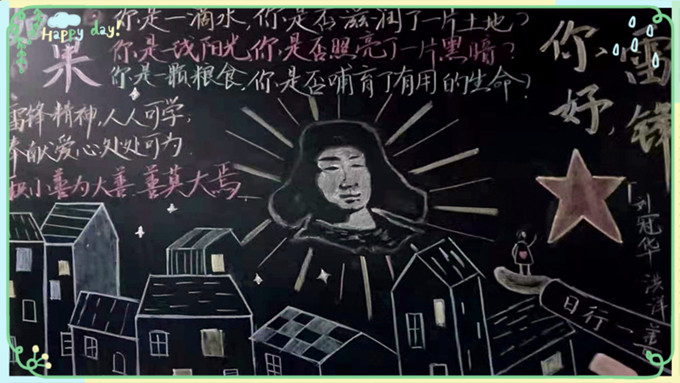 Happy day!
如果
你是一滴水,你是否滋润了一片土地?
你是一线阳光,你是否照亮了一片黑暗?
你是一颗粮食,你是否哺育了有用的生命?
雷锋精神,人人可学;
奉献爱心,处处可为.
积小善为大善,善莫大焉.
你好,
雷锋
刘冠华
洪洋
日行一善